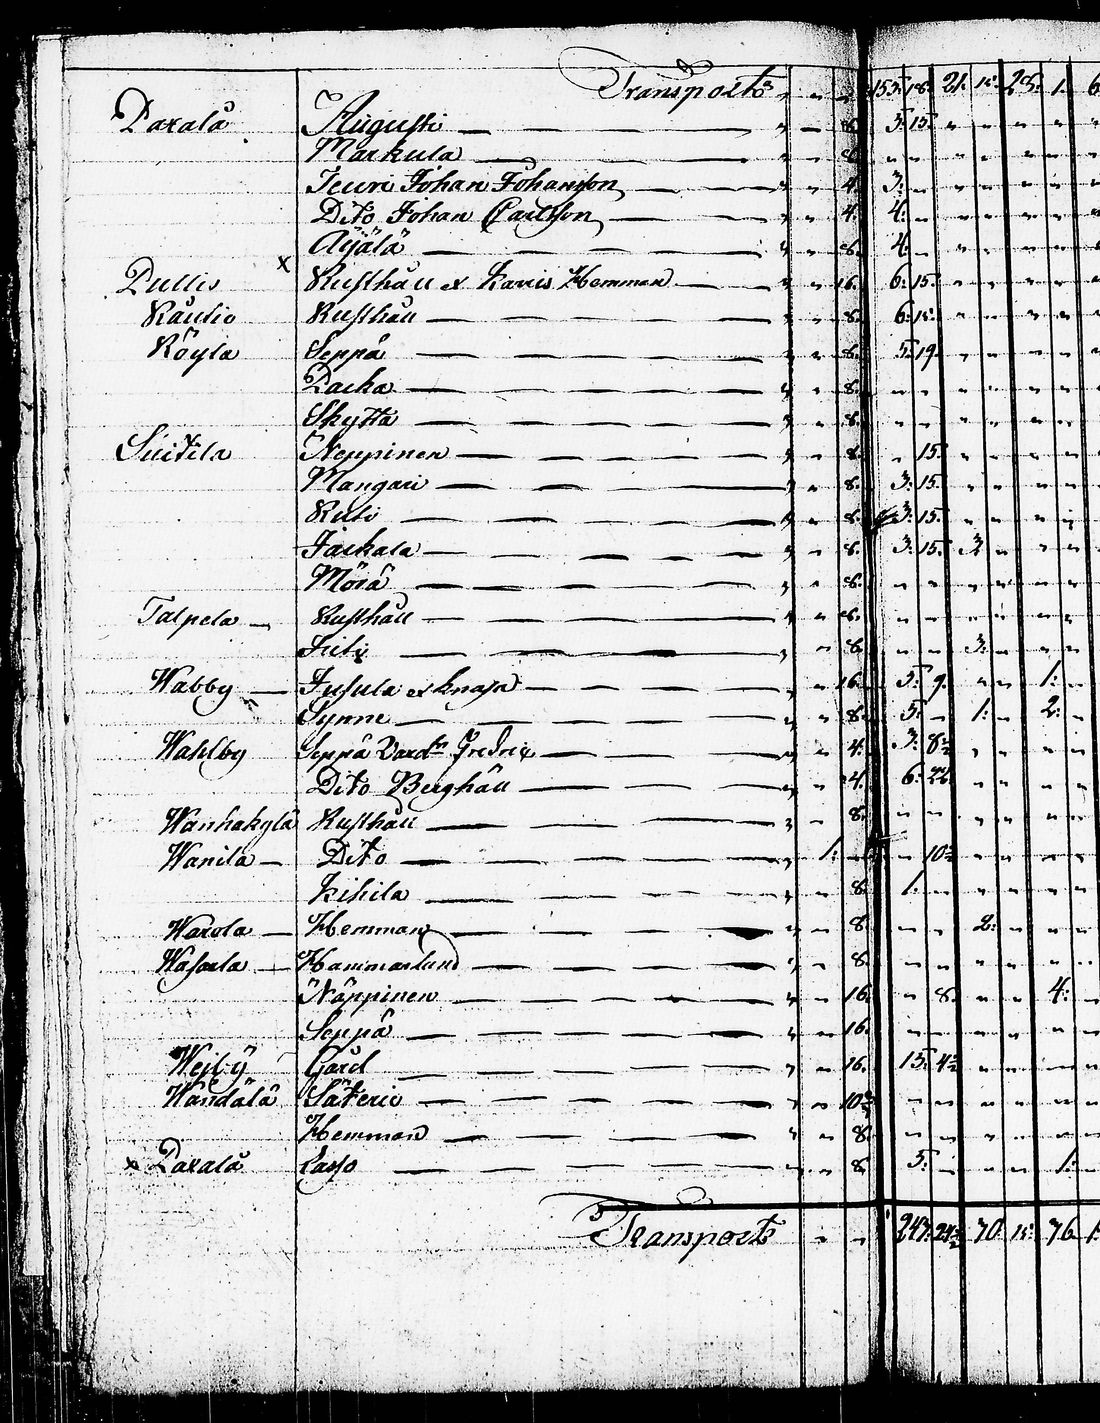 Transporte " " " 153: 18: 21. 15: 25: 1: 6
Paxala Augusti " " 8. 3: 15. " " " " "
Markula " " 8. " " " " " " "
Jeuri Johan Johansson " " 4. 3: " " " " " "
Dito Johan Carlsson " " 4. 4: " " " " " "
Äÿälä " " 8. 4. " " " " " "
Pullis x Rusthåll et Karris Hemman " " 16. 6: 15. " " " " "
Räutio Rusthåll " " 8. 6: 15. " " " " "
Röyla Seppä " " 8. 5: 19. " " " " "
Packa " " 8. " " " " " " "
Skyttä " " 8. " " " " " " "
Suitela Neppinen " " 8. " 15. " " " " "
Mangari " " 8. 3: 15. " " " " "
Ruti " " 8. 3: 15. " " " " "
Jackala " " 8. 3: 15. 3. " " " "
Mörä " " 8. " " " " " " "
Talpela Rusthåll " " 8. " " " " " " "
Juti " " 8. " " 3: " " "
Wabby Jusula et Knapa " " 16. 5: 9. " " 1: "
Synne " " 8. 5: " 1: " 2: "
Wahlby Seppä Vard Fredric " " 4. 3: 8½ " " " "
Dito Berghäll " " 4. 6: 22. " " " "
Wanhakylä Rusthåll " " 8. " " " " " "
Wanila Dito " 1: " " 10½ " " " "
Kihila " " 8. 1: " " " " "
Warola Hemman " " 8. " " 2: " " "
Wasarla Hammarlund " " 8. " " " " " "
Näppinen " " 16. " 8. " " 4: "
Seppä " " 16. " " " " " "
Wejbÿ Gård " " 16. 15: 4½ " " " "
Wändälä Säterie " " 10⅔ " " " " " "
Hemman " " 8. " " " " " "
x Paxala Lasso " " 8. 5: " " " 1: "
Transporte " " 247: 24½ 70 15: 76 1: